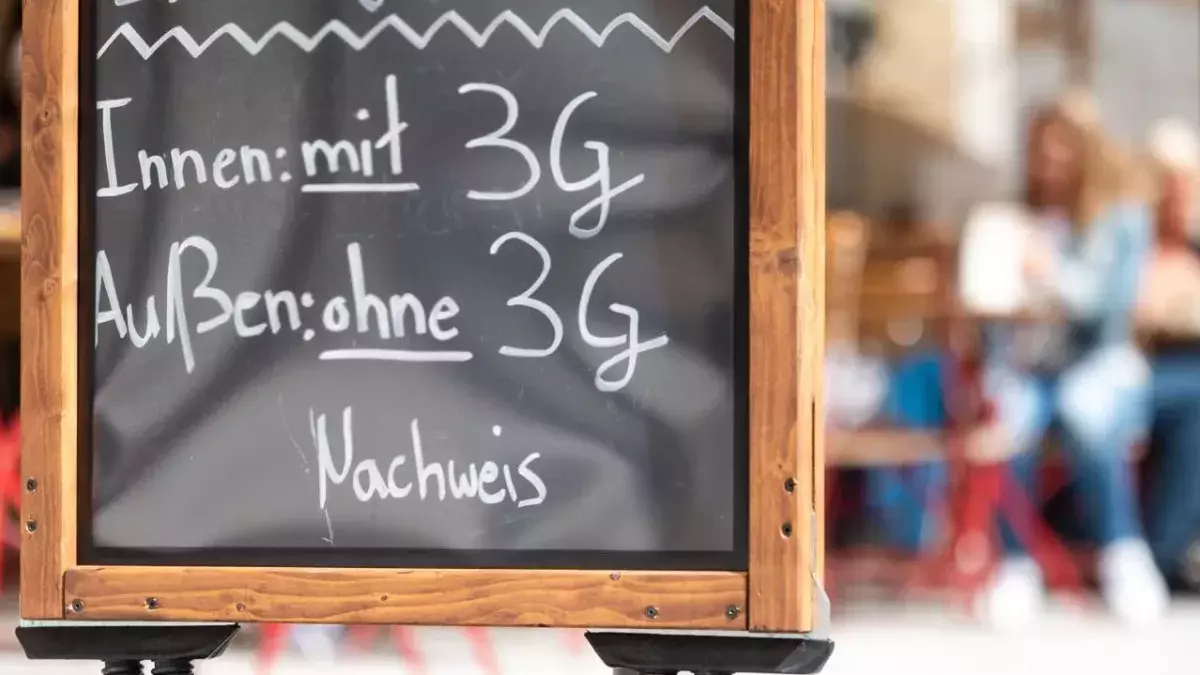 Innen: mit 3G
Außen: ohne 3G
Nachweis